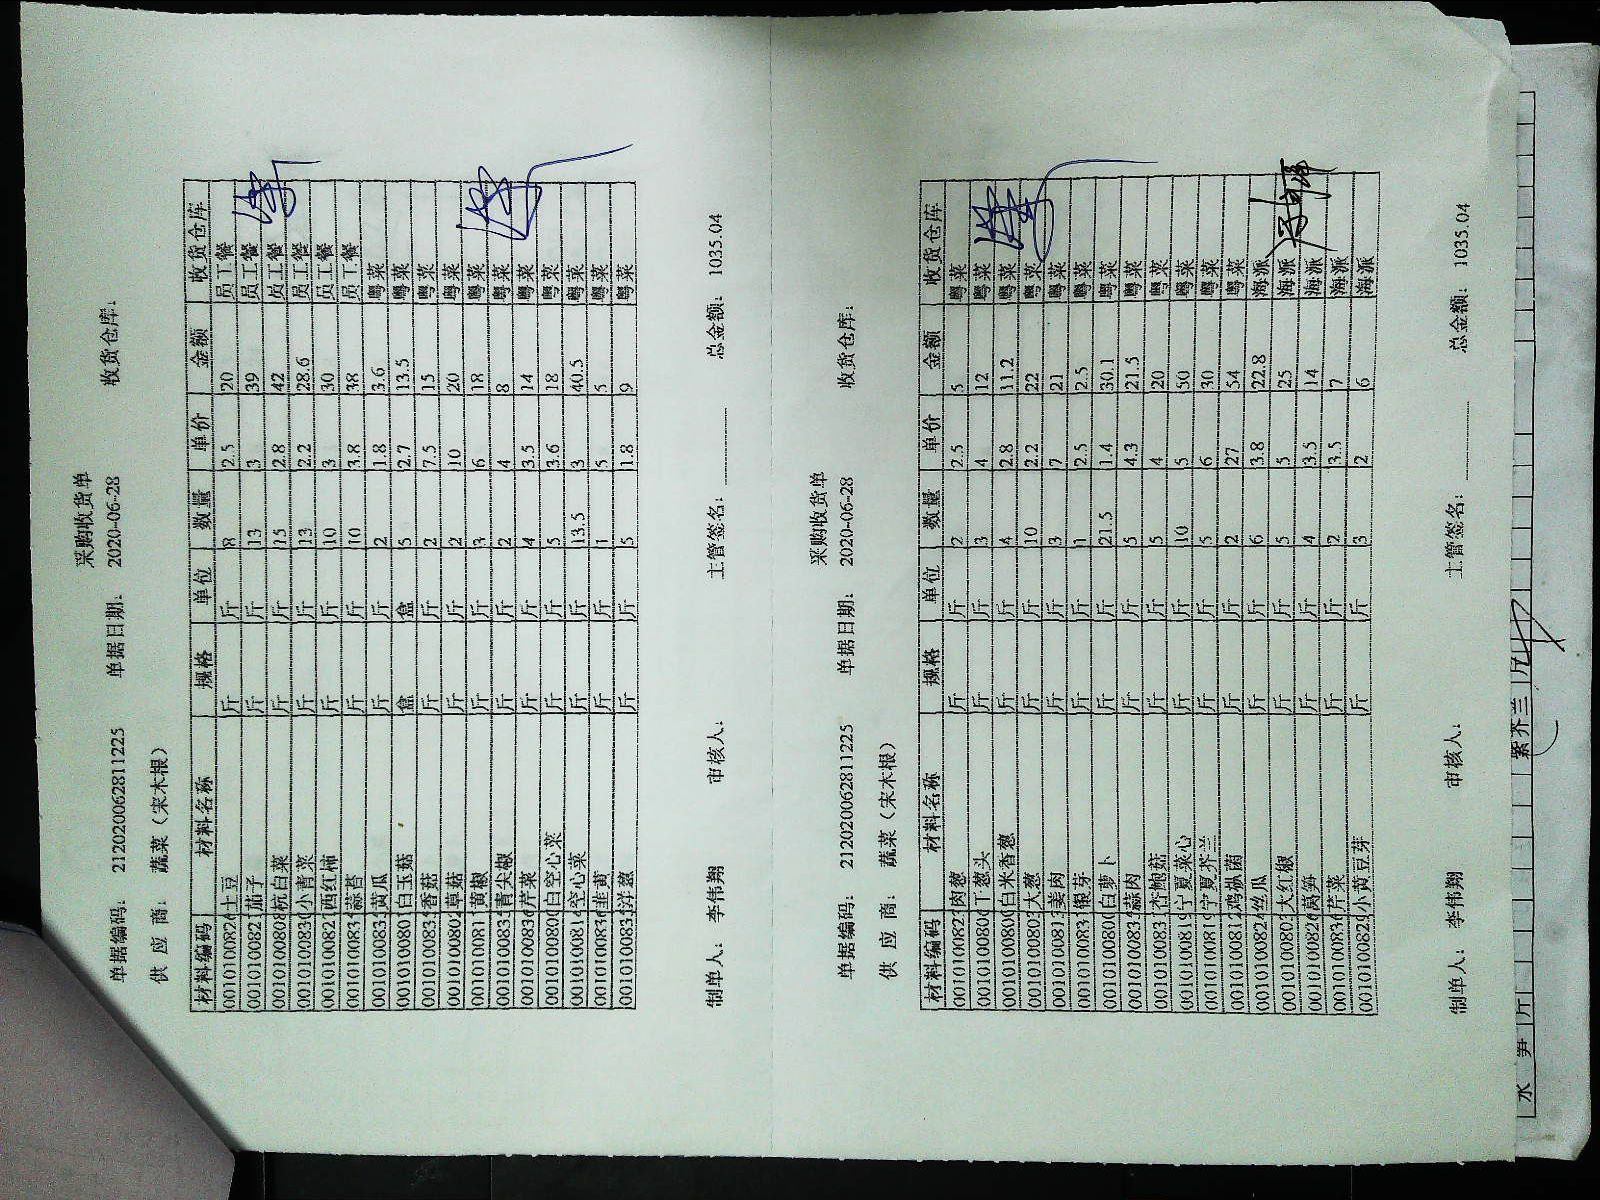 采购收货单
单据编码: 212020062811225 单据日期: 2020-06-28 收货仓库:
供 应 商: 蔬菜（宋木根）
材料编码 材料名称 规格 单位 数量 单价 金额 收货仓库
001010082 土豆 斤 斤 8 2.5 20 员工餐
001010082 茄子 斤 斤 13 3 39 员工餐
001010080 杭白菜 斤 斤 15 2.8 42 员工餐
001010083 小青菜 斤 斤 13 2.2 28.6 员工餐
001010082 西红柿 斤 斤 10 3 30 员工餐
001010083 蒜苔 斤 斤 10 3.8 38 员工餐
001010083 黄瓜 斤 斤 2 1.8 3.6 粤菜
001010080 白玉菇 盒 盒 5 2.7 13.5 粤菜
001010083 香菇 斤 斤 2 7.5 15 粤菜
001010080 草菇 斤 斤 2 10 20 粤菜
001010081 黄椒 斤 斤 3 6 18 粤菜
001010083 青尖椒 斤 斤 2 4 8 粤菜
001010083 芹菜 斤 斤 4 3.5 14 粤菜
001010080 白空心菜 斤 斤 5 3.6 18 粤菜
001010081 空心菜 斤 斤 13.5 3 40.5 粤菜
001010083 韭黄 斤 斤 1 5 5 粤菜
001010083 洋葱 斤 斤 5 1.8 9 粤菜
制单人: 李伟翔 审核人: 主管签名: 总金额: 1035.04
采购收货单
单据编码: 212020062811225 单据日期: 2020-06-28 收货仓库:
供 应 商: 蔬菜（宋木根）
材料编码 材料名称 规格 单位 数量 单价 金额 收货仓库
001010082 肉葱 斤 斤 2 2.5 5 粤菜
001010080 干葱头 斤 斤 3 4 12 粤菜
001010080 白米香葱 斤 斤 4 2.8 11.2 粤菜
001010080 大葱 斤 斤 10 2.2 22 粤菜
001010081 姜肉 斤 斤 3 7 21 粤菜
001010083 银芽 斤 斤 1 2.5 2.5 粤菜
001010080 白萝卜 斤 斤 21.5 1.4 30.1 粤菜
001010083 蒜肉 斤 斤 5 4.3 21.5 粤菜
001010083 杏鲍菇 斤 斤 5 4 20 粤菜
001010081 宁夏菜心 斤 斤 10 5 50 粤菜
001010081 宁夏芥兰 斤 斤 5 6 30 粤菜
001010081 鸡枞菌 斤 斤 2 27 54 粤菜
001010082 丝瓜 斤 斤 6 3.8 22.8 海派
001010080 大红椒 斤 斤 5 5 25 海派
001010082 莴笋 斤 斤 4 3.5 14 海派
001010083 芹菜 斤 斤 2 3.5 7 海派
001010082 小黄豆芽 斤 斤 3 2 6 海派
制单人: 李伟翔 审核人: 主管签名: 总金额: 1035.04
水 笋 斤 紫芥兰